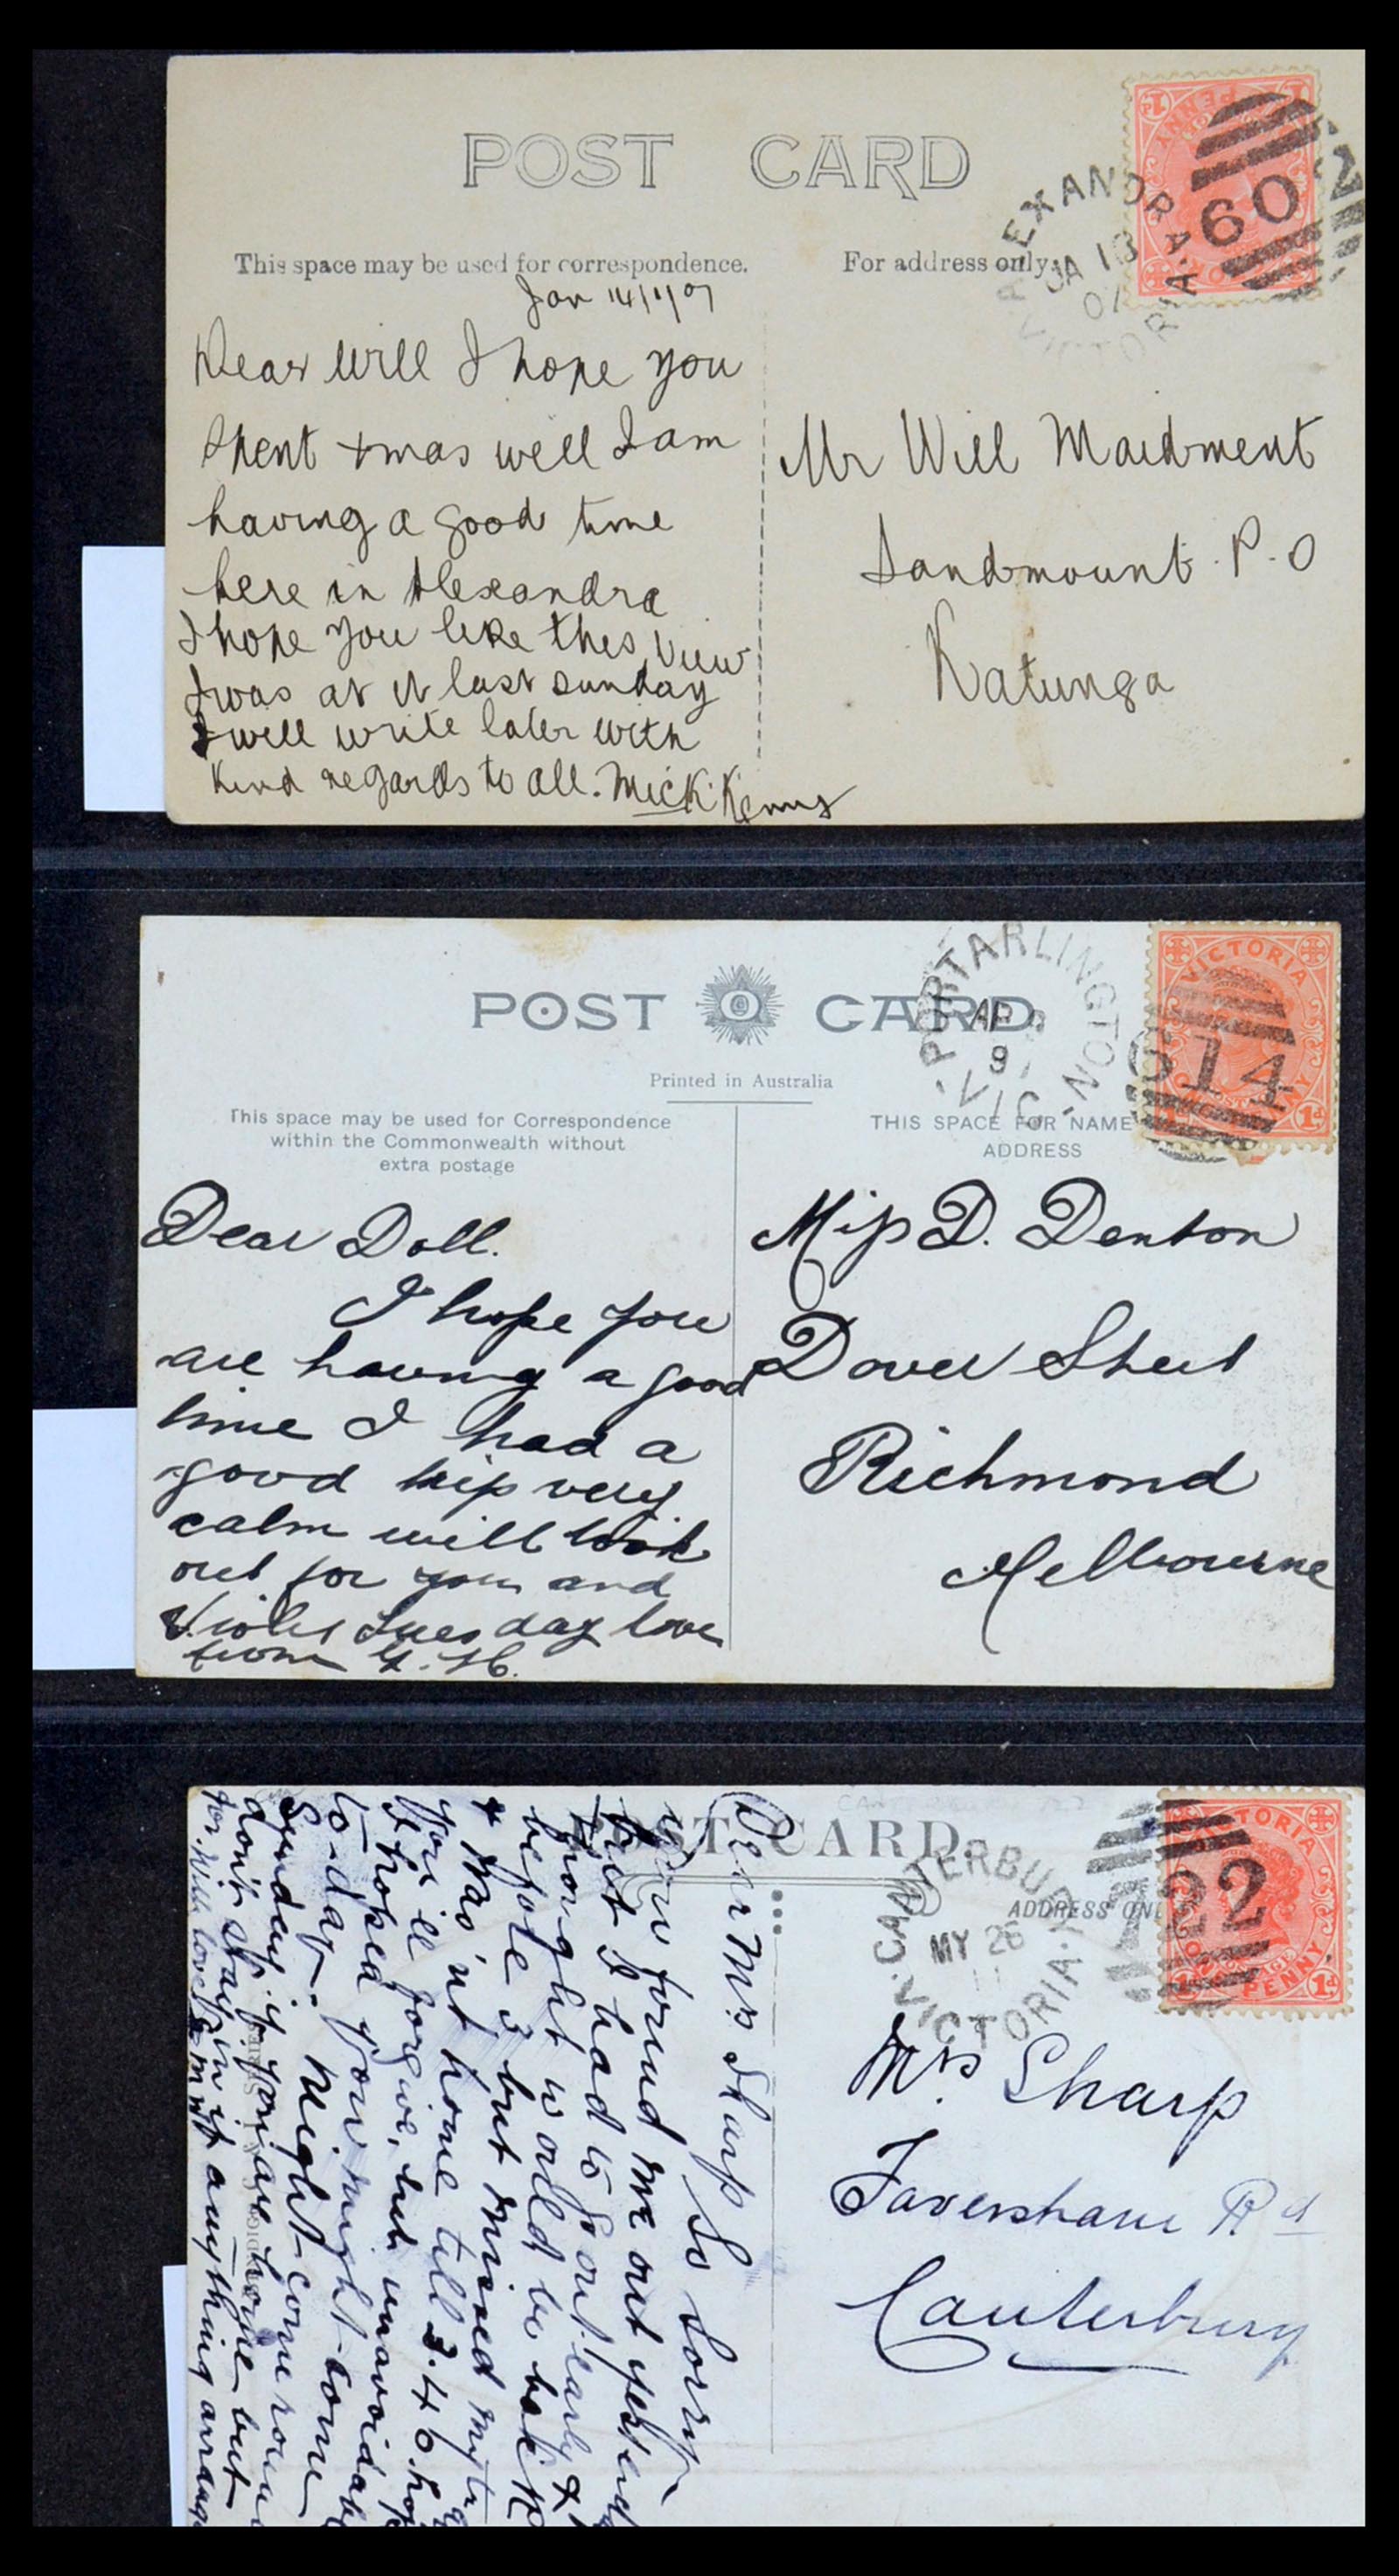 POST CARD
This space may be used for correspondence.
For address only.
ALEXANDRA
JA 13
07
VICTORIA
602
1
1
Jan 14/1/07
Dear Will I hope you
spent xmas well I am
having a good time
here in Alexandra
I hope you like this view
I was at it last sunday
I will write later with
Kind regards to all. Mick Kenny
Mr Will Maidment
Sandmount P.O
Katunga
POST CARD
Printed in Australia
This space may be used for Correspondence
within the Commonwealth without
extra postage
THIS SPACE FOR NAME
ADDRESS
PORTARLINGTON
AP
9
VIC
VICTORIA
514
1d
Dear Doll.
I hope you
are having a good
time I had a
good trip very
calm will look
out for you and
Violet Tuesday love
from
Miss D. Denton
Dover Street
Richmond
Melbourne
POST CARD.
ADDRESS ONL
CANTERBURY
MY 26
11
VICTORIA
VICTORIA
722
PENNY
1d
Dear Mrs Sharp So sorry
you found me out yesterd
but I had to go out early &
thought would be back
before 3 but missed my tr
& was'nt home till 3.46. hop
you'll forgive, but unavoidabl
I hoped you might come
to-day. Might come roun
Sunday if you are home but
don't stay in if anything arrang
for. With love
Mrs Sharp
Faversham Rd
Canterbury